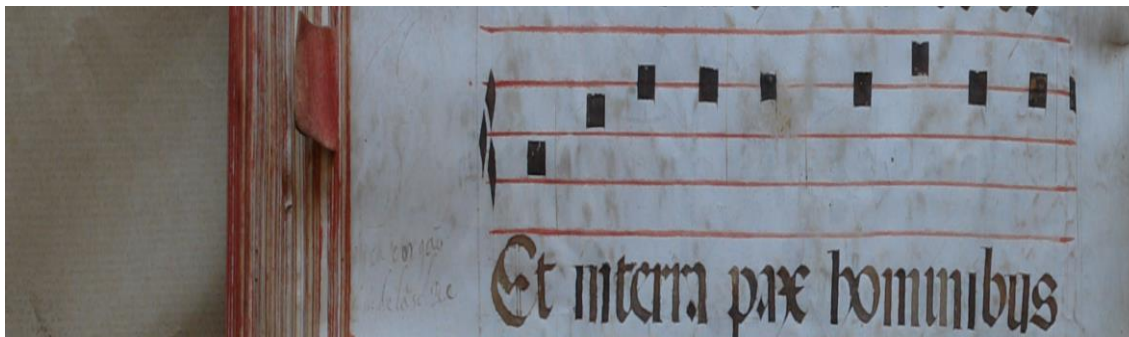 Et interra pax hominibus